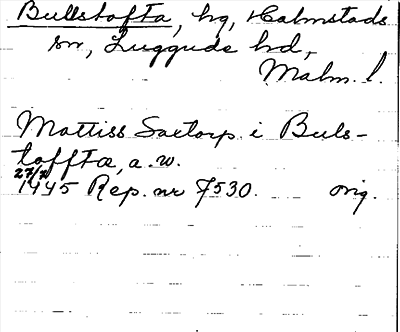 Bullstofta, hg, Halmstads
sn, Luggude hd,
Malm. l.
Mattiss Saxtorp i Buls-
toffta, a. w.
27/7
1445 Rep. nr 7530. orig.